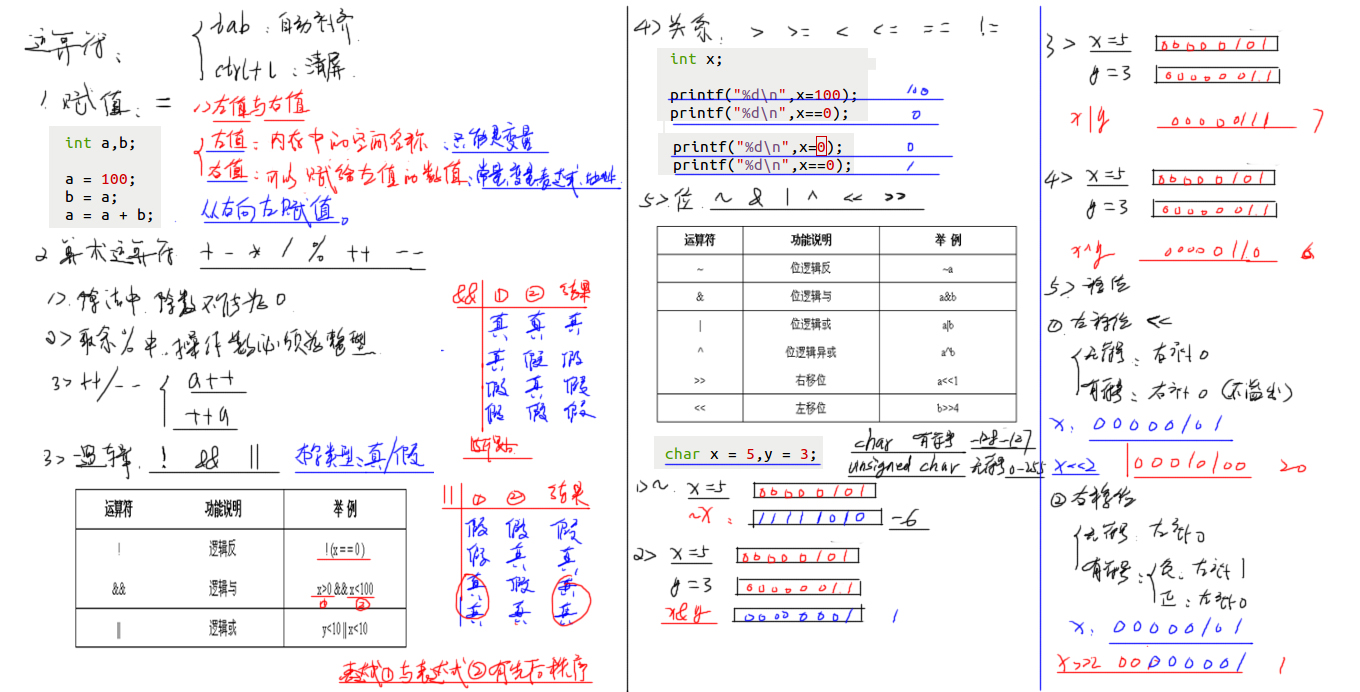 运算符:
tab:自动补齐
ctrl+L:清屏
1. 赋值: =
1> 左值与右值
左值:内存中的空间名称:只能是变量
右值:可以赋给左值的数值:常量、变量、表达式、地址
从右向左赋值。
int a,b;
a = 100;
b = a;
a = a + b;
2 算术运算符 + - * / % ++ --
1>. 除法中,除数不能为0
2> 取余%中,操作数必须为整型
3> ++/-- a++
++a
3> 逻辑 ! && || 布尔类型:真/假
运算符 功能说明 举 例
! 逻辑反 !(x==0)
&& 逻辑与 x>0 && x<100
① ②
|| 逻辑或 y<10 || x<10
&& ① ② 结果
真 真 真
真 假 假
假 真 假
假 假 假
|| ① ② 结果
假 假 假
假 真 真
真 假 真
真 真 真
表达式①与表达式②有先后秩序
4> 关系: > >= < <= == !=
int x;
printf("%d\n",x=100); 100
printf("%d\n",x==0); 0
printf("%d\n",x=0); 0
printf("%d\n",x==0); 1
5> 位 ~ & | ^ << >>
运算符 功能说明 举 例
~ 位逻辑反 ~a
& 位逻辑与 a&b
| 位逻辑或 a|b
^ 位逻辑异或 a^b
>> 右移位 a<<1
<< 左移位 b>>4
char x = 5,y = 3;
char 有符号 -128-127
unsigned char 无符号 0-255
1> ~ x=5 00000101
~x: 11111010 -6
2> x=5 00000101
y=3 00000011
x&y 00000001 1
3> x=5 00000101
y=3 00000011
x|y 00000111 7
4> x=5 00000101
y=3 00000011
x^y 00000110 6
5> 移位
① 左移位 <<
无符号:右补0
有符号:右补0 (不溢出)
x: 00000101
x<<2 00010100 20
② 右移位
无符号 左补0
有符号: 负:左补1
正:左补0
x: 00000101
x>>2 00000001 1